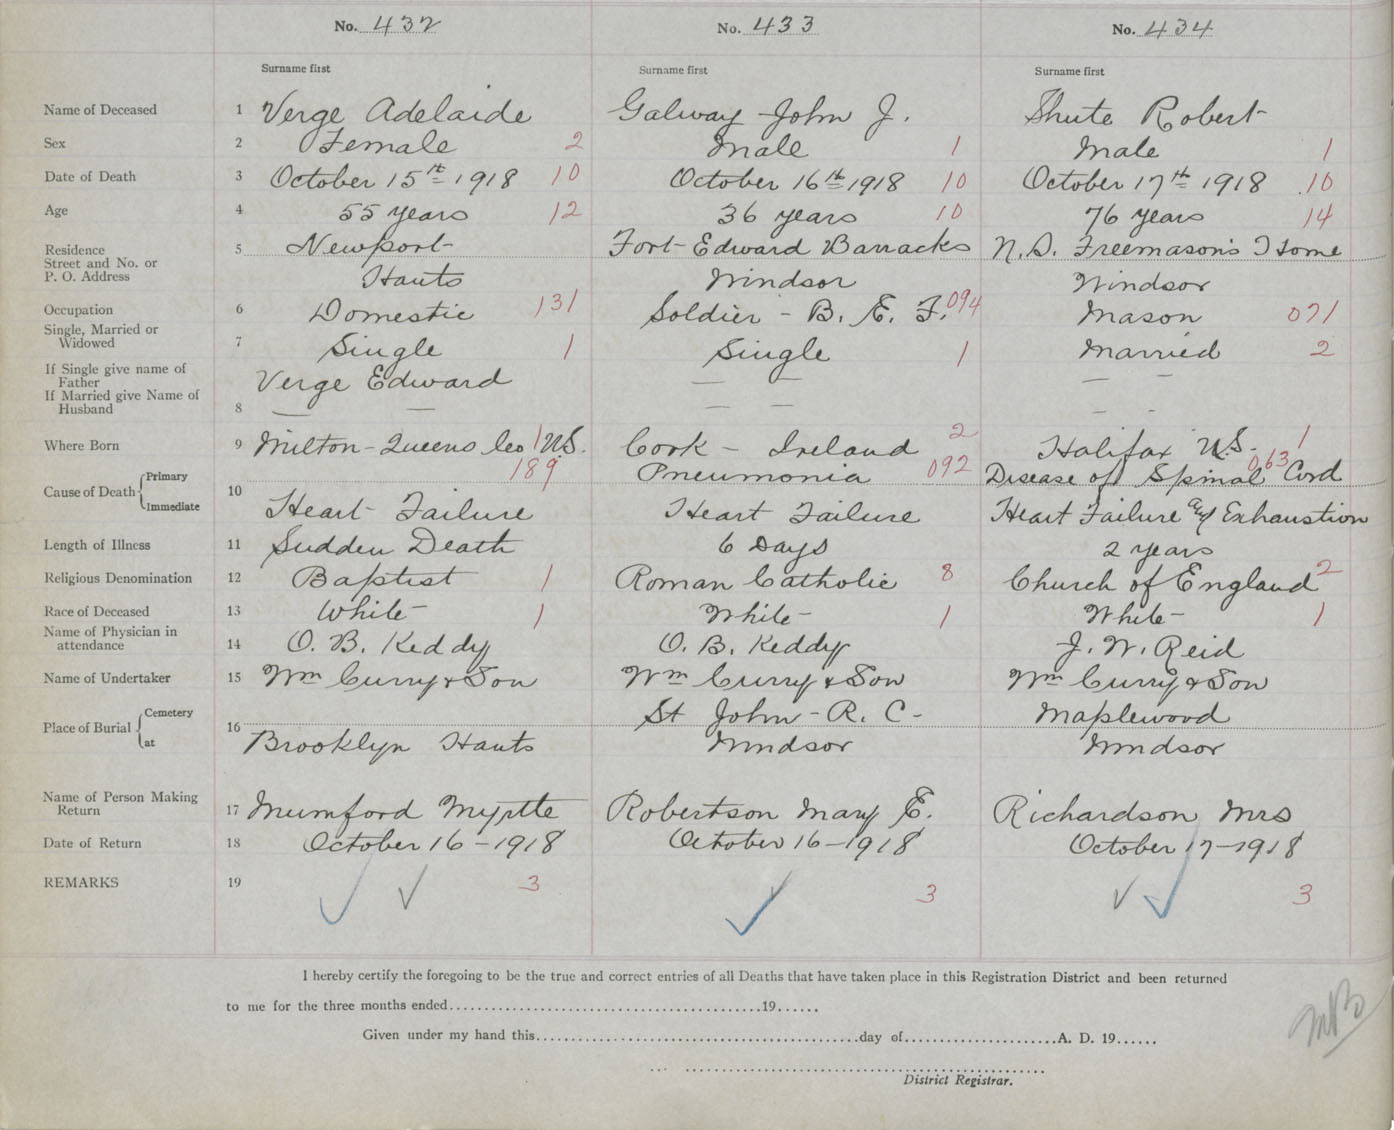 No. 432 No. 433 No. 434
Surname first Surname first Surname first
Name of Deceased 1 Verge Adelaide Galway John J. Shute Robert
Sex 2 Female 2 Male 1 Male 1
Date of Death 3 October 15th 1918 10 October 16th 1918 10 October 17th 1918 10
Age 4 55 years 12 36 years 10 76 years 14
Residence 5 Newport Fort Edward Barracks N.S. Freemason's Home
Street and No. or
P. O. Address Hants Windsor Windsor
Occupation 6 Domestic 131 Soldier - B. E. F. 094 Mason 071
Single, Married or
Widowed 7 Single 1 Single 1 Married 2
If Single give name of
Father Verge Edward — — — —
If Married give Name of
Husband 8 — — — — - -
Where Born 9 Milton - Queens Co N.S. 1 Cork - Ireland 2 Halifax N.S. 1
Cause of Death Primary 189 Pneumonia 092 Disease of Spinal Cord 063
Immediate 10 Heart Failure Heart Failure Heart Failure and Exhaustion
Length of Illness 11 Sudden Death 6 Days 2 years
Religious Denomination 12 Baptist 1 Roman Catholic 8 Church of England 2
Race of Deceased 13 White 1 White 1 White 1
Name of Physician in
attendance 14 O. B. Keddy O. B. Keddy J. W. Reid
Name of Undertaker 15 Wm Curry & Son Wm Curry & Son Wm Curry & Son
Place of Burial Cemetery 16 St John - R. C - Maplewood
at Brooklyn Hants Windsor Windsor
Name of Person Making
Return 17 Mumford Myrtle Robertson Mary E. Richardson Mrs
Date of Return 18 October 16 - 1918 October 16 - 1918 October 17 - 1918
REMARKS 19 3 3 3
I hereby certify the foregoing to be the true and correct entries of all Deaths that have taken place in this Registration District and been returned
to me for the three months ended 19
Given under my hand this day of A. D. 19
District Registrar.